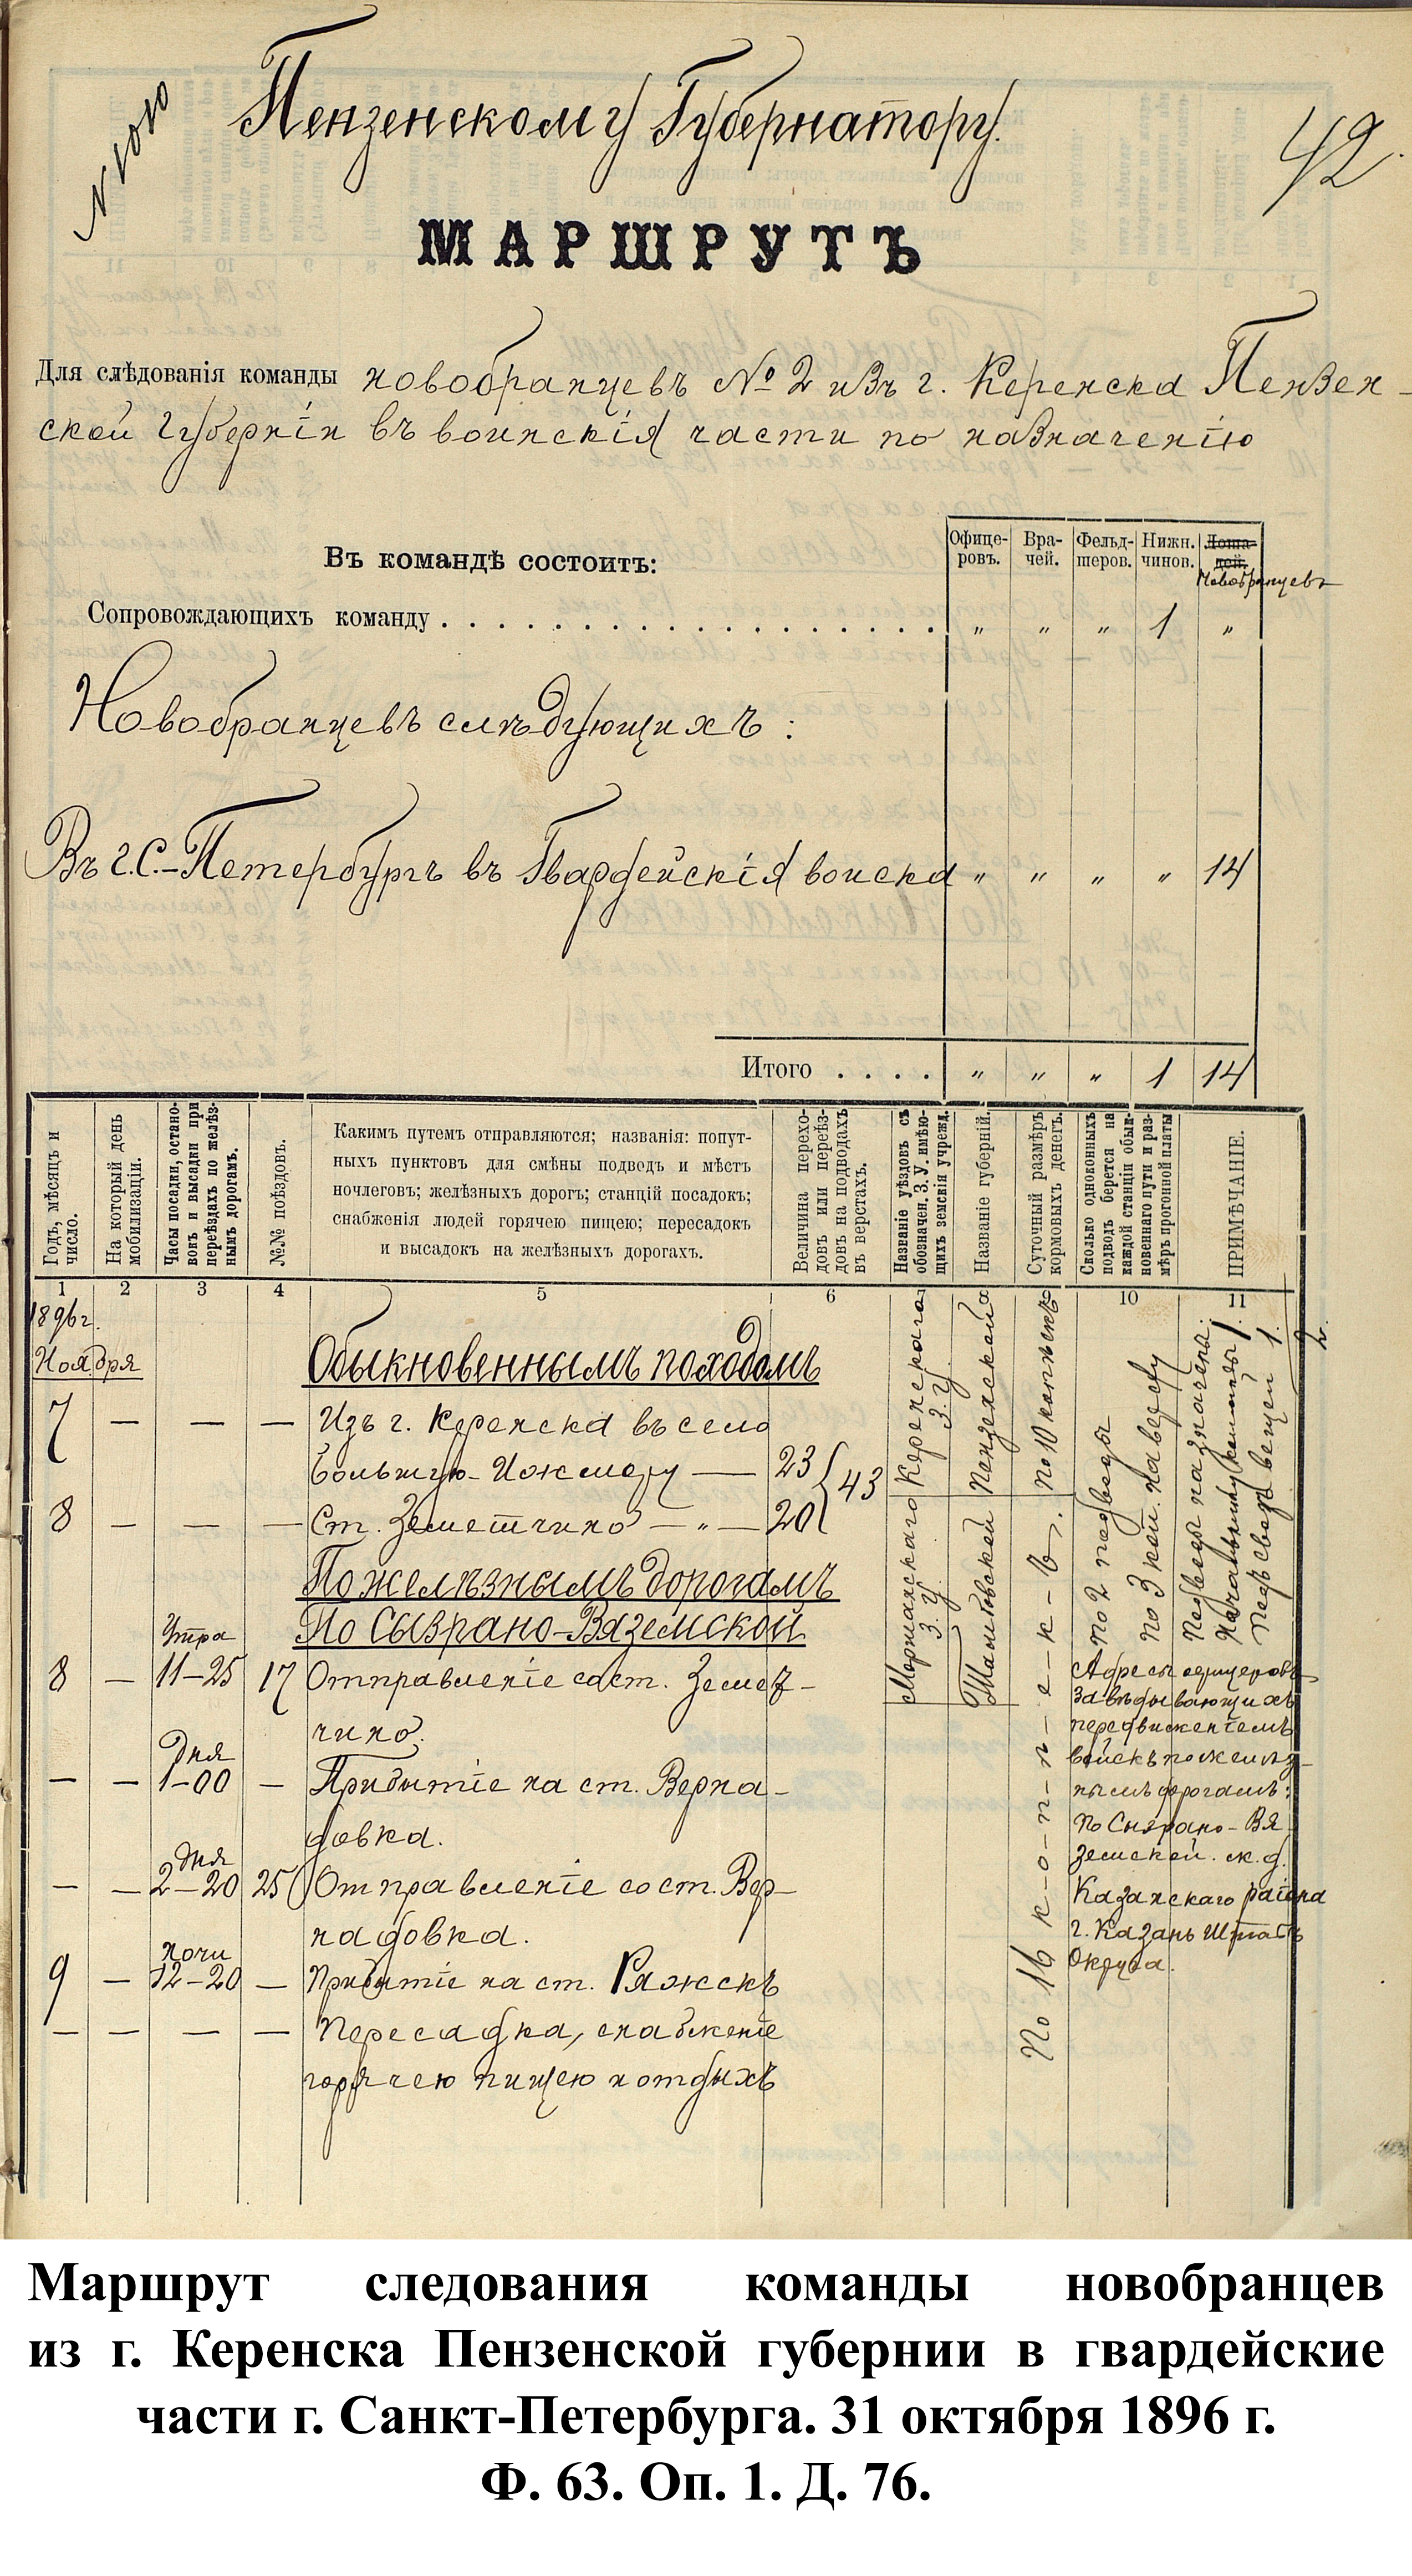 N 1010
Пензенскому Губернатору.
42
МАРШРУТЪ
Для слѣдованія команды новобранцевъ № 2 изъ г. Керенска Пензен-
ской Губерніи въ воинскія части по назначенію
Въ командѣ состоитъ:
Офице-
ровъ.
Вра-
чей.
Фельд-
шеров.
Нижн.
чинов.
Лоша-
дей.
Новобранцевъ
Сопровождающихъ команду . . . . . . . . . . . . . . . . . . „ „ „ 1 „
Новобранцевъ слѣдующихъ:
Въ г. С.-Петербургъ въ Гвардейскія войска „ „ „ „ 14
Итого . . . . „ „ „ 1 14
Годъ, мѣсяцъ и
число.
На который день
мобилизаціи.
Часы посадки, остано-
вокъ и высадки при
переѣздахъ по желѣз-
нымъ дорогамъ.
№№ поѣздовъ.
Какимъ путемъ отправляются; названія: попут-
ныхъ пунктовъ для смѣны подводъ и мѣстъ
ночлеговъ; желѣзныхъ дорогъ; станцій посадокъ;
снабженія людей горячею пищею; пересадокъ
и высадокъ на желѣзныхъ дорогахъ.
Величина перехо-
довъ или переѣз-
довъ на подводахъ
въ верстахъ.
Названіе уѣздовъ съ
обозначен. З. У. имѣю-
щихъ земскія учрежд.
Названіе губерній.
Суточный размѣръ
кормовыхъ денегъ.
Сколько одноконныхъ
подводъ берется на
каждой станціи обык-
новеннаго пути и раз-
мѣръ прогонной платы
ПРИМѢЧАНІЕ.
1 2 3 4 5 6 7 8 9 10 11
1896 г.
Ноября
Обыкновеннымъ походомъ
7 — — — Изъ г. Керенска въ село
Большую-Ижмору — 23
43
8 — — — Ст. Земетчино — „ — 20
По желѣзнымъ дорогамъ
По Сызрано-Вяземской
Утра
8 — 11-25 17 Отправленіе со ст. Земет-
чино.
Дня
— — 1-00 — Прибытіе на ст. Верна-
довка.
Дня
— — 2-20 25 Отправленіе со ст. Вер-
надовка.
ночи
9 — 12-20 — Прибытіе на ст. Ряжскъ
— — — — Пересадка, снабженіе
горячею пищею и отдыхъ
Керенскаго
З. У.
Моршанскаго
З. У.
Пензенской
Тамбовской
По 10 копѣекъ
По 16 к-о-п-ѣ-е-к-ъ.
По 2 подводы
по 3 коп. на версту
Подводы назначены:
Начальнику команды 1.
Подъ сводъ вещей 1.
2.
Адресы офицеровъ
завѣдывающихъ
передвиженіемъ
войскъ по желѣз-
нымъ дорогамъ:
по Сызрано-Вя
земской. ж. д.
Казанскаго раіона
г. Казань Штабъ
Округа.
Маршрут следования команды новобранцев
из г. Керенска Пензенской губернии в гвардейские
части г. Санкт-Петербурга. 31 октября 1896 г.
Ф. 63. Оп. 1. Д. 76.